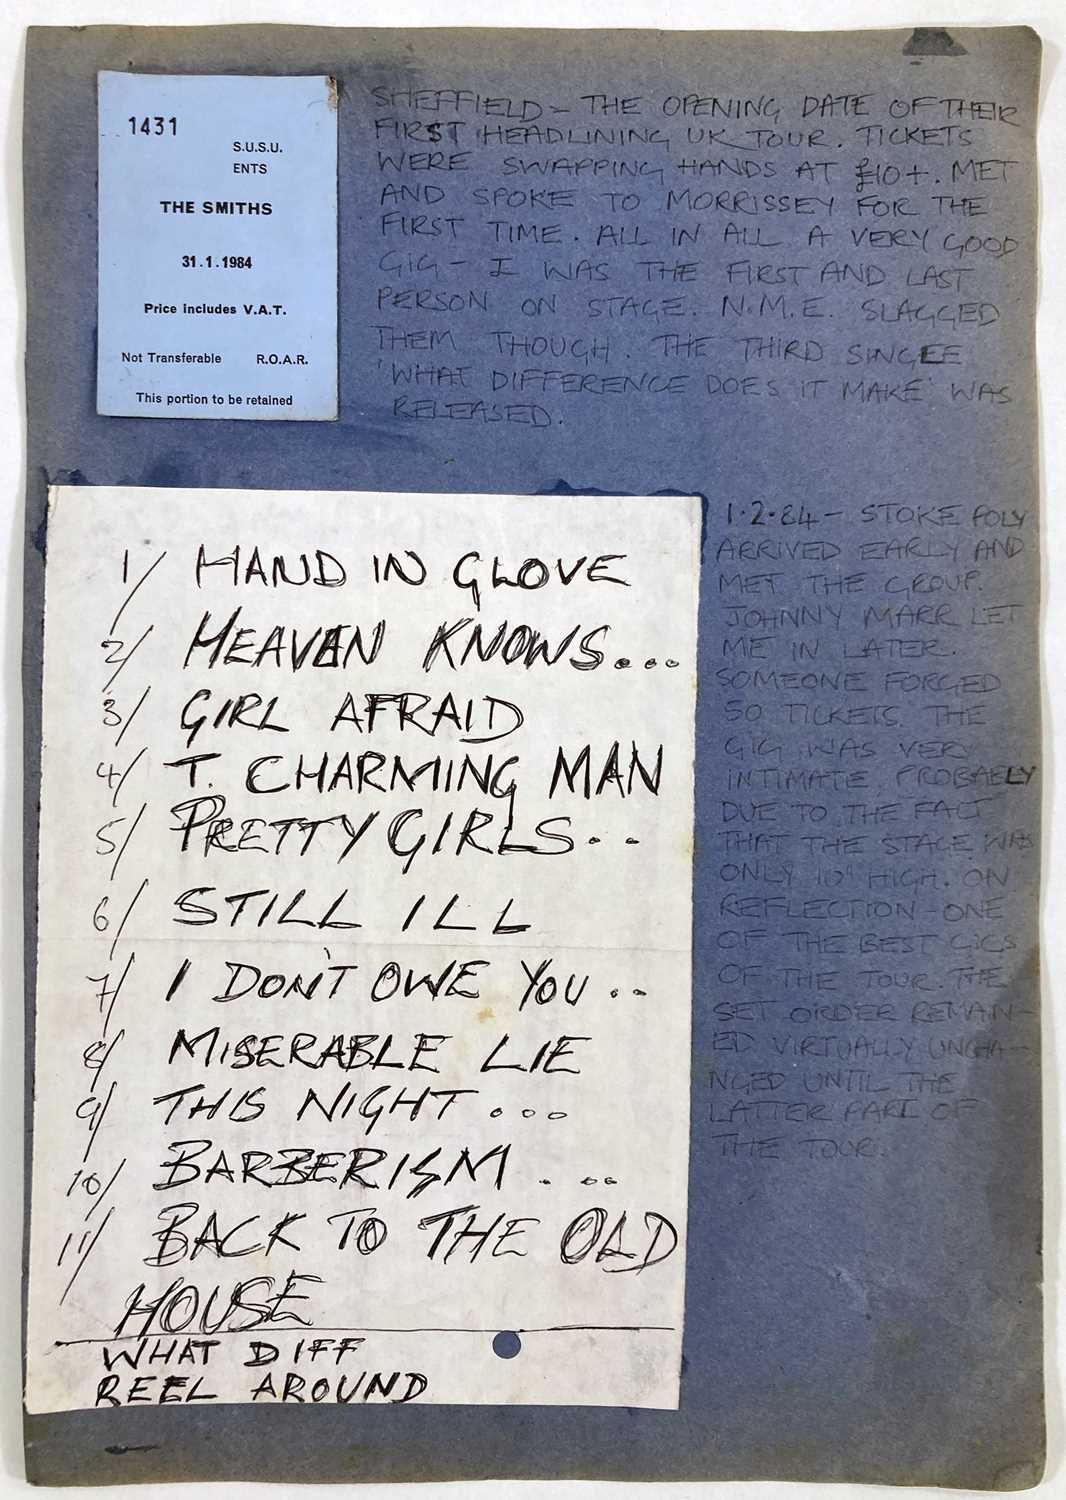 1431
S.U.S.U.
ENTS
THE SMITHS
31.1.1984
Price includes V.A.T.
Not Transferable R.O.A.R.
This portion to be retained
SHEFFIELD - THE OPENING DATE OF THEIR
FIRST HEADLINING UK TOUR. TICKETS
WERE SWAPPING HANDS AT £10+. MET
AND SPOKE TO MORRISSEY FOR THE
FIRST TIME. ALL IN ALL A VERY GOOD
GIG - I WAS THE FIRST AND LAST
PERSON ON STAGE. N.M.E. SLAGGED
THEM THOUGH. THE THIRD SINGLE
'WHAT DIFFERENCE DOES IT MAKE' WAS
RELEASED.
1/ HAND IN GLOVE
2/ HEAVEN KNOWS...
3/ GIRL AFRAID
4/ T. CHARMING MAN
5/ PRETTY GIRLS..
6/ STILL ILL
7/ I DON'T OWE YOU..
8/ MISERABLE LIE
9/ THIS NIGHT...
10/ BARBERISM...
11/ BACK TO THE OLD
HOUSE
WHAT DIFF
REEL AROUND
1.2.84 - STOKE POLY
ARRIVED EARLY AND
MET THE GROUP.
JOHNNY MARR LET
ME IN LATER.
SOMEONE FORGED
50 TICKETS. THE
GIG WAS VERY
INTIMATE, PROBABLY
DUE TO THE FACT
THAT THE STAGE WAS
ONLY 10" HIGH. ON
REFLECTION - ONE
OF THE BEST GIGS
OF THE TOUR. THE
SET ORDER REMAIN-
ED VIRTUALLY UNCHA-
NGED UNTIL THE
LATTER PART OF
THE TOUR.